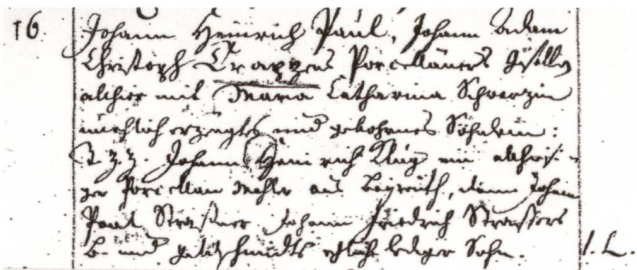 16. Johann Heinrich Paul, Johann Adam
Christoph Trappens Porcellainers Gesellen
alhier mit Maria Catharina Schwarzin
unehlich erzeugtes und gebohrnes Söhnlein:
T. z. z. Johann Heinrich Klug ein alhiesi-
ger Porcellan Mahler aus Bayreuth, dann Johann
Paul Straßner Johann Friedrich Strassers
B. und schmidts ehelich lediger Sohn. l. L.